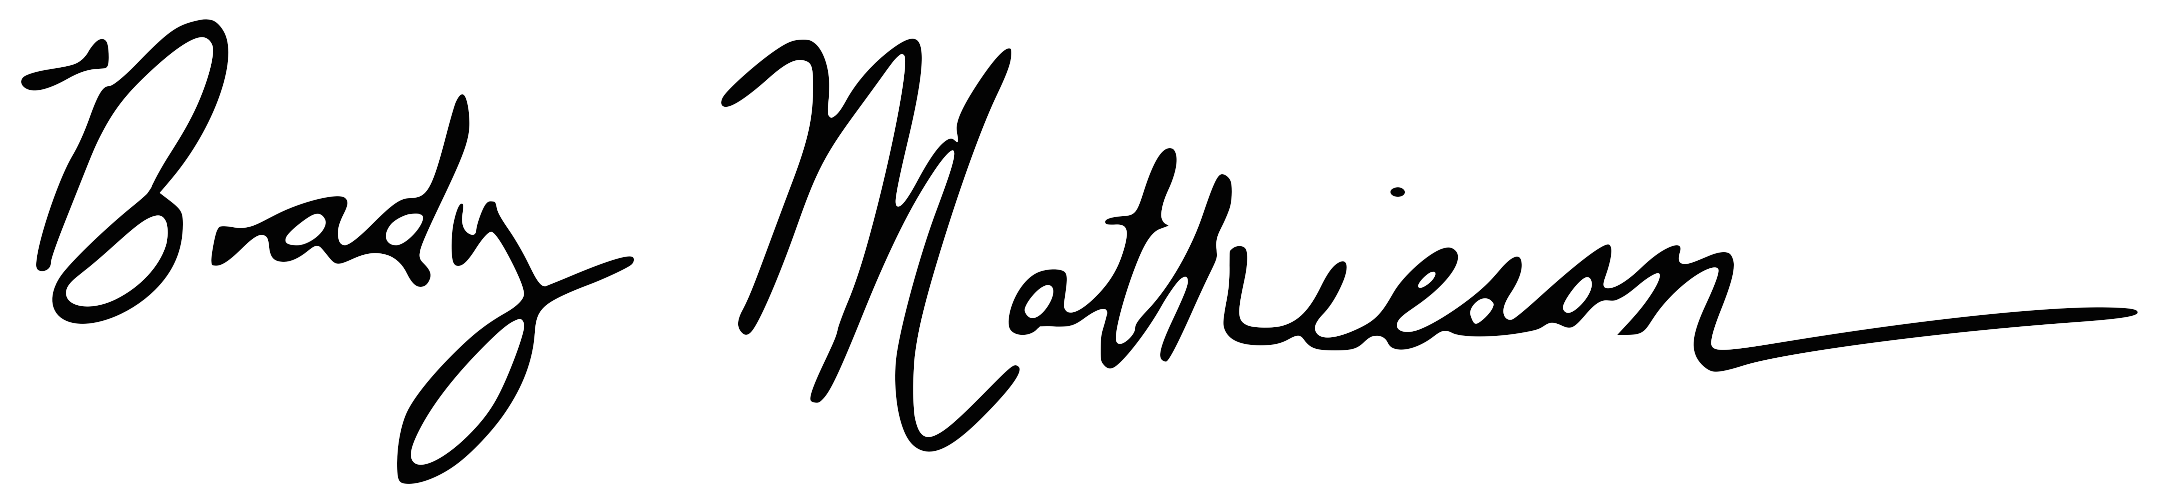 Brady Mathieson